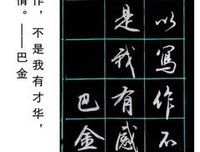 以寫作不
是我有感
巴金
作，不是我有才华，
情。——巴金